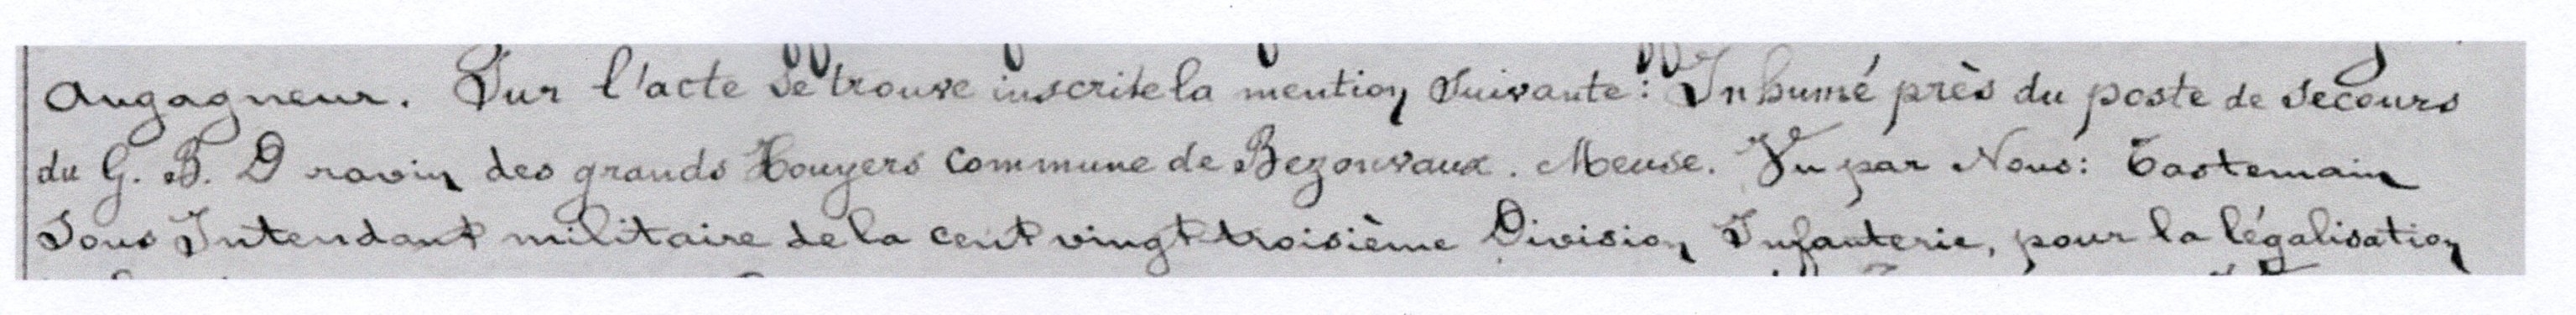 Augagneur. Sur l'acte se trouve inscrite la mention suivante : Inhumé près du poste de secours
du G. B. D ravin des grands Houyers commune de Bezonvaux. Meuse. Vu par Nous : Tastemain
Sous Intendant militaire de la cent vingt troisième Division Infanterie, pour la légalisation